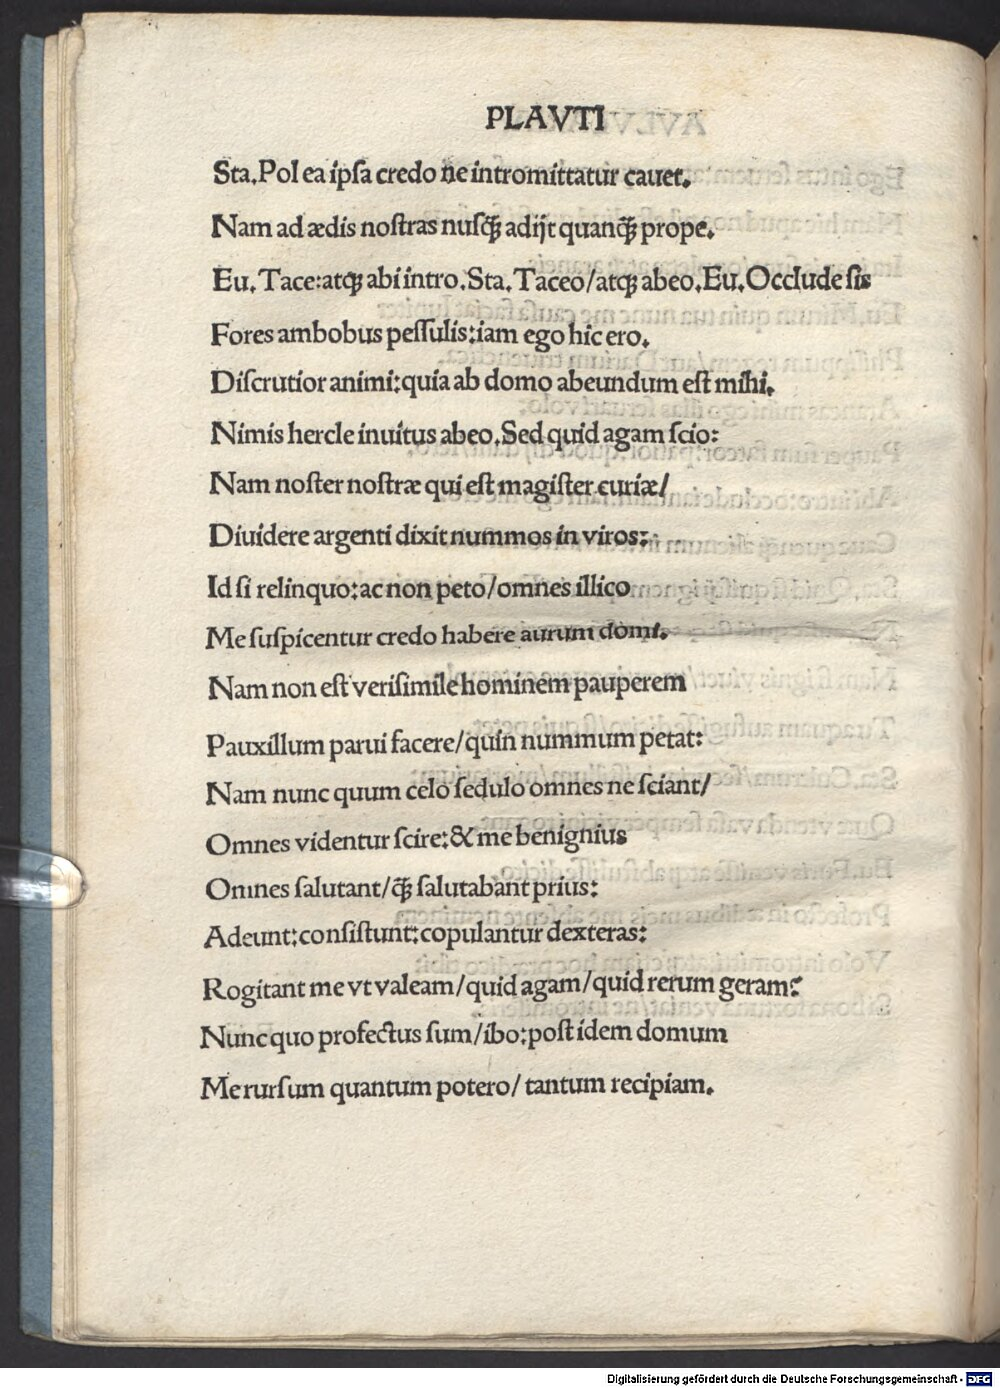 PLAVTI
Sta. Pol ea ipſa credo ne intromittatur cauet.
Nam ad ædis noſtras nuſꝗ̃ adijt quanꝗ̃ prope.
Eu. Tace: atꝙ abi intro. Sta. Taceo/ atꝙ abeo. Eu. Occlude ſis
Fores ambobus peſſulis: iam ego hic ero.
Diſcrutior animi: quia ab domo abeundum eſt mihi.
Nimis hercle inuitus abeo. Sed quid agam ſcio:
Nam noſter noſtræ qui eſt magiſter curiæ/
Diuidere argenti dixit nummos in viros:
Id ſi relinquo: ac non peto/ omnes illico
Me ſuſpicentur credo habere aurum domi.
Nam non eſt veriſimile hominem pauperem
Pauxillum parui facere/ quin nummum petat:
Nam nunc quum celo ſedulo omnes ne ſciant/
Omnes videntur ſcire: & me benignius
Omnes ſalutant/ ꝗ̃ ſalutabant prius:
Adeunt: conſiſtunt: copulantur dexteras:
Rogitant me vt valeam/ quid agam/ quid rerum geram?
Nunc quo profectus ſum/ ibo: poſt idem domum
Me rurſum quantum potero/ tantum recipiam.
Digitalisierung gefördert durch die Deutsche Forschungsgemeinschaft - DFG